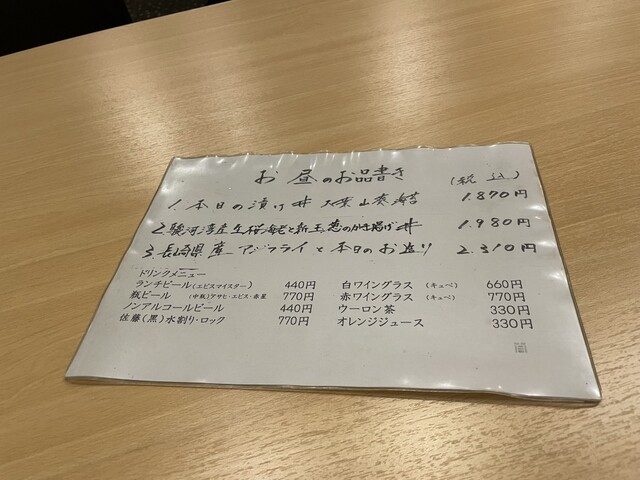 お昼のお品書き (税込)
1. 本日の漬け丼 1.870円
2. 駿河湾産生桜海老と新玉葱のかき揚げ丼 1.980円
3. 長崎県産アジフライと本日のお造り 2.310円
ドリンクメニュー
ランチビール(エビスマイスター) 440円 白ワイングラス (キュベ) 660円
瓶ビール (中瓶)アサヒ・エビス・赤星 770円 赤ワイングラス (キュベ) 770円
ノンアルコールビール 440円 ウーロン茶 330円
佐藤(黒)水割り・ロック 770円 オレンジジュース 330円